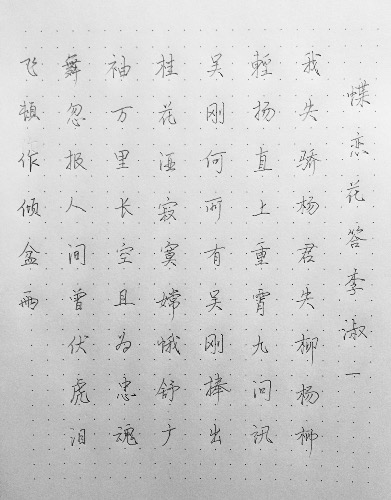 蝶恋花答李淑一
我失骄杨君失柳杨柳
輕扬直上重霄九问訊
吴刚何所有吴刚捧出
桂花酒寂寞嫦娥舒广
袖万里长空且为忠魂
舞忽报人间曾伏虎泪
飞顿作倾盆雨